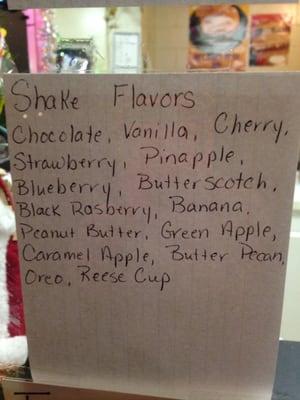 Shake Flavors
Chocolate, Vanilla, Cherry,
Strawberry, Pinapple,
Blueberry, Butterscotch,
Black Rasberry, Banana,
Peanut Butter, Green Apple,
Caramel Apple, Butter Pecan,
Oreo, Reese Cup